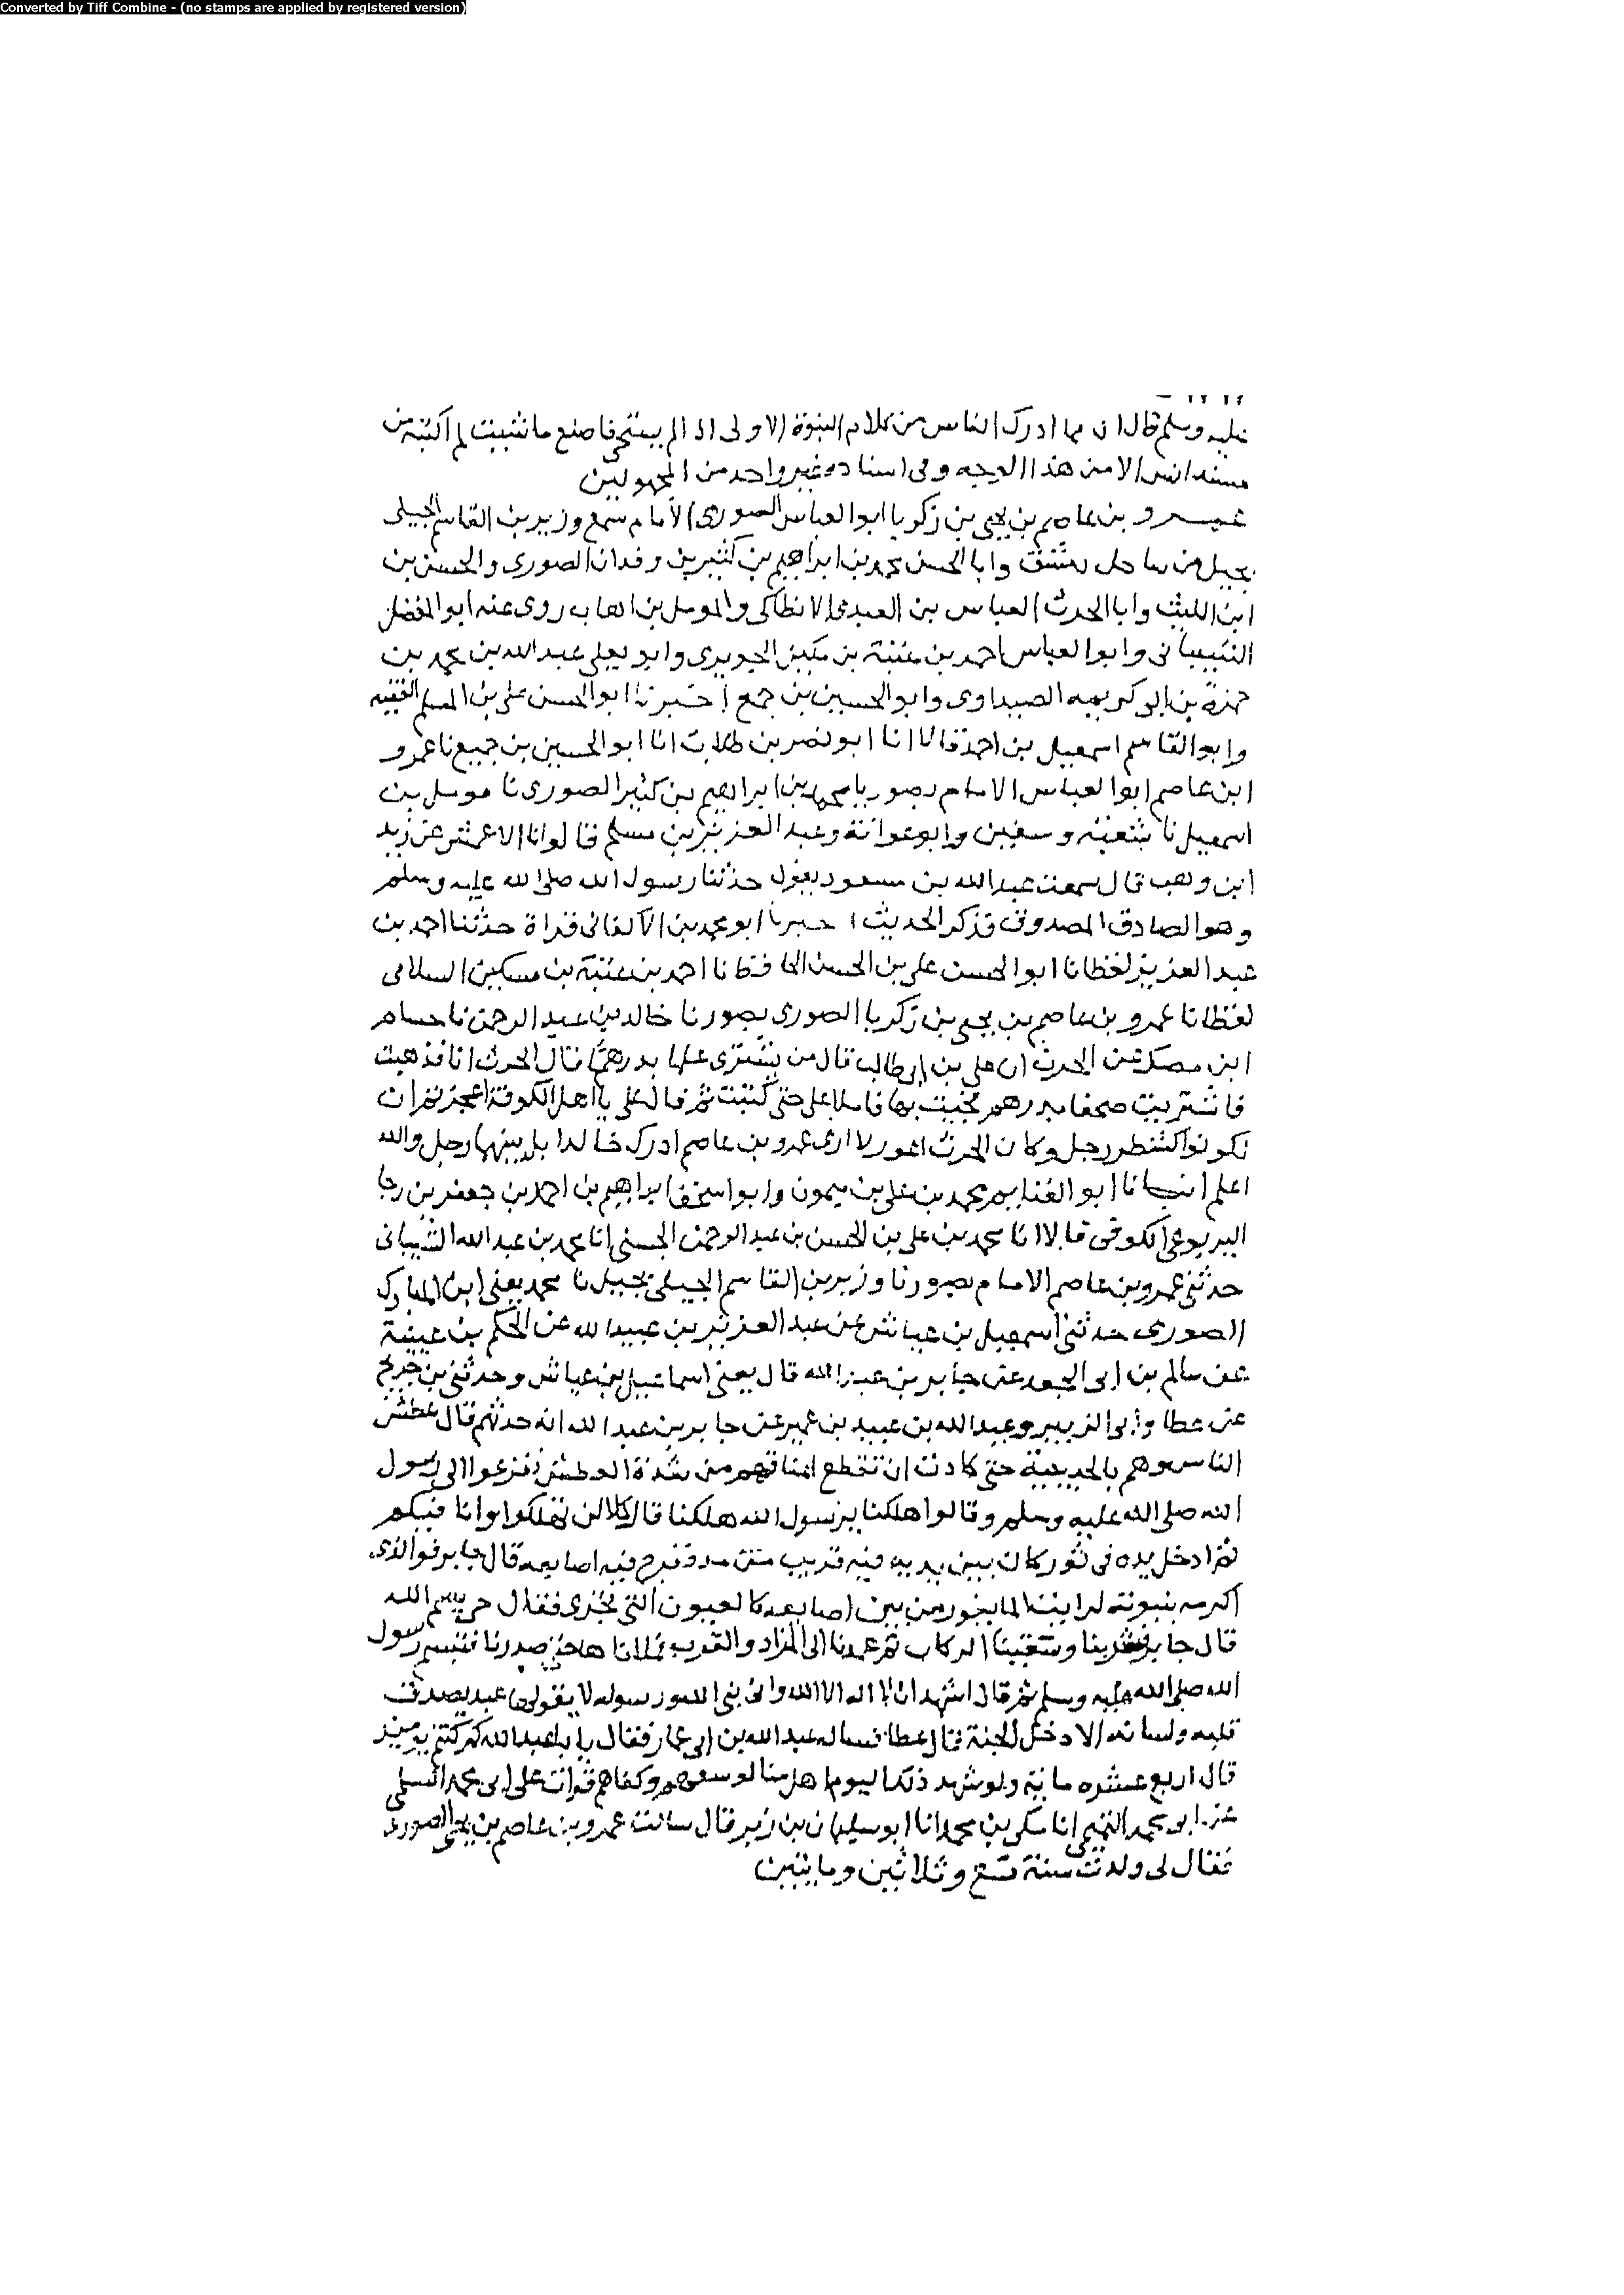 Converted by Tiff Combine - (no stamps are applied by registered version)
عليه وسلم قال ان مما ادرك الناس من كلام النبوة الاولى اذا لم يستحي فاصنع ما شيت لم اكتبه من
مسند انس الا من هذا الوجه وفي اسناده غير واحد من المجهولين
عمرو بن عاصم بن يحيى بن زكريا ابو العباس الصوري الامام سمع وزير بن القاسم الجبيلي
بجبيل من ساحل دمشق وابا الحسن محمد بن ابراهيم بن كثير بن وقدان الصوري والحسن بن
ابن الليث وابا الحرث العباس بن العبدي الانطاكي والموسل بن اهاب روى عنه ابو المفضل
الشيباني وابو العباس احمد بن عتبة بن مكين الجوبري وابو يعلى عبد الله بن محمد بن
حمزة بن ابي كريمه الصيداوي وابو الحسين بن جمع اخبرنا ابو الحسن علي بن المسلم الفقيه
وابو القاسم اسمعيل بن احمد قالا انا ابو نصر بن طلاب انا ابو الحسين بن جميع نا عمرو
ابن عاصم ابو العباس الامام بصور نا محمد بن ابراهيم بن كثير الصوري نا موسل بن
اسمعيل نا شعبه وسفين وابو عوانة وعبد العزيز بن مسلم قالوا نا الاعمش عن زيد
ابن وهب قال سمعت عبد الله بن مسعود يقول حدثنا رسول الله صلى الله عليه وسلم
وهو الصادق المصدوق فذكر الحديث اخبرنا ابو محمد بن الاكفاني قراة حدثنا احمد بن
عبد العزيز لفظا نا ابو الحسن علي بن الحسن الحافظ نا احمد بن عتبة بن مسكين السلامي
لفظا نا عمرو بن عاصم بن يحيى بن زكريا الصوري بصور نا خالد بن عبد الرحمن نا حسام
ابن مصك عن الحرث ان علي بن ابي طالب قال من يشتري علما بدرهم قال الحرث انا فذهبت
فاشتريت صحفا بدرهم فجيت بها فاملا علي حتى كتبت ثم قال علي يا اهل الكوفة اعجزتم ان
تكونوا كشطر رجل وكان الحرث اعور لا ارى عمرو بن عاصم ادرك خالدا بل بينهما رجل والله
اعلم انبانا ابو الغنايم محمد بن علي بن ميمون وابو اسحق ابراهيم بن احمد بن جعفر بن رجا
اليربوعي الكوفي قالا انا محمد بن علي بن الحسن بن عبد الرحمن الحسني انا محمد بن عبد الله الشيباني
حدثني عمرو بن عاصم الامام بصور نا وزير بن القاسم الجبيلي بجبيل نا محمد يعني ابن المبارك
الصوري حدثني اسمعيل بن عياش عن عبد العزيز بن عبيد الله عن الحكم بن عيينة
عن سالم بن ابي الجعد عن جابر بن عبد الله قال يعني اسماعيل بن عياش وحدثني بن جريج
عن عطا وابي الزبير وعبد الله بن عبيد بن عمير عن جابر بن عبد الله انه حدثهم قال عطش
الناس وهم بالحديبية حتى كادت ان تقطع اعناقهم من شدة العطش ففزعوا الى رسول
الله صلى الله عليه وسلم وقالوا هلكنا يرسول الله هلكنا قال كلا لن تهلكوا وانا فيكم
ثم ادخل يده في تور كان بين يديه فيه قريب من مد ففرج فيه اصابعه قال جابر فوالذي
اكرمه بنبوته لرايت الما يفور من بين اصابعه كالعيون التي تجري فقال حي بسم الله
قال جابر فشربنا وسقينا الركاب ثم عمدنا الى المزاد والقرب فملانا ها حتى صدرنا فتبسم رسول
الله صلى الله عليه وسلم ثم قال اشهد ان لا اله الا الله واني نبي الله ورسوله لا يقولها عبد يصدق
قلبه ولسانه الا دخل الجنة قال عطا فساله عبد الله بن ابي عمار فقال يا با عبد الله كم كنتم يوميذ
قال اربع عشره ماية ولو شهد ذلك اليوم اهل منا لوسعهم وكفاهم قرات على ابي محمد السلمي
عن ابو محمد التميمي انا مكي بن محمد انا ابو سليمان بن زبر قال سالت عمرو بن عاصم بن يحيى الصوري
فقال لي ولدت سنة تسع وثلاثين ومايتين